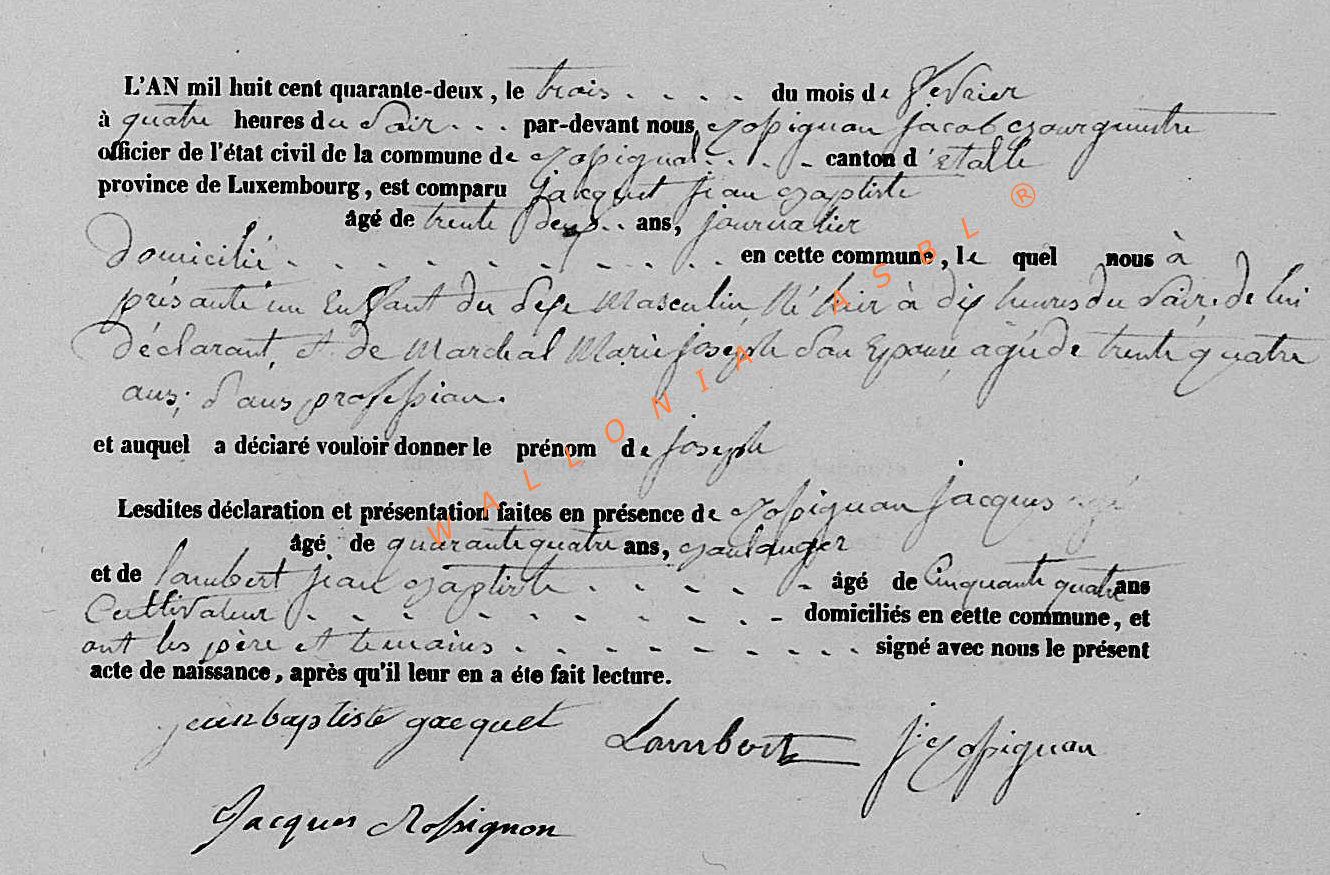 L'AN mil huit cent quarante-deux, le trois . . . . du mois de fevrier
à quatre heures du Soir . . . par-devant nous Rossignon jacob Bourguestre
officier de l'état civil de la commune de Rossignol . . . . canton d'Etalle
province de Luxembourg, est comparu jacquet jean Baptiste
âgé de trente deux . . ans, journalier
Domicilié . . . . . . . . . . en cette commune, le quel nous à
présanté un Enfant du Sexe Masculin, Né hier à dix heures du Soir, de lui
déclarant, et de Marchal Marie joseph Son Epouse, agée de trente quatre
ans, Sans profession.
et auquel a déclaré vouloir donner le prénom de joseph
Lesdites déclaration et présentation faites en présence de Rossignon jacques
âgé de quarante quatre ans, Boulanger
et de lambert jean Baptiste . . . . . âgé de Cinquante quatre ans
Cultivateur . . . . . . . . . domiciliés en cette commune, et
ont les père et temains . . . . . . . . . signé avec nous le présent
acte de naissance, après qu'il leur en a éte fait lecture.
jeanbaptiste jacquet Lambert j Rossignon
Jacques Rossignon
WALLONIA ASBL ®